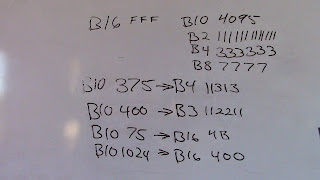 B16 FFF B10 4095
B2 111111111111
B4 333333
B8 7777
B10 375→B4 11313
B10 400→B3 112211
B10 75→B16 4B
B10 1024→B16 400